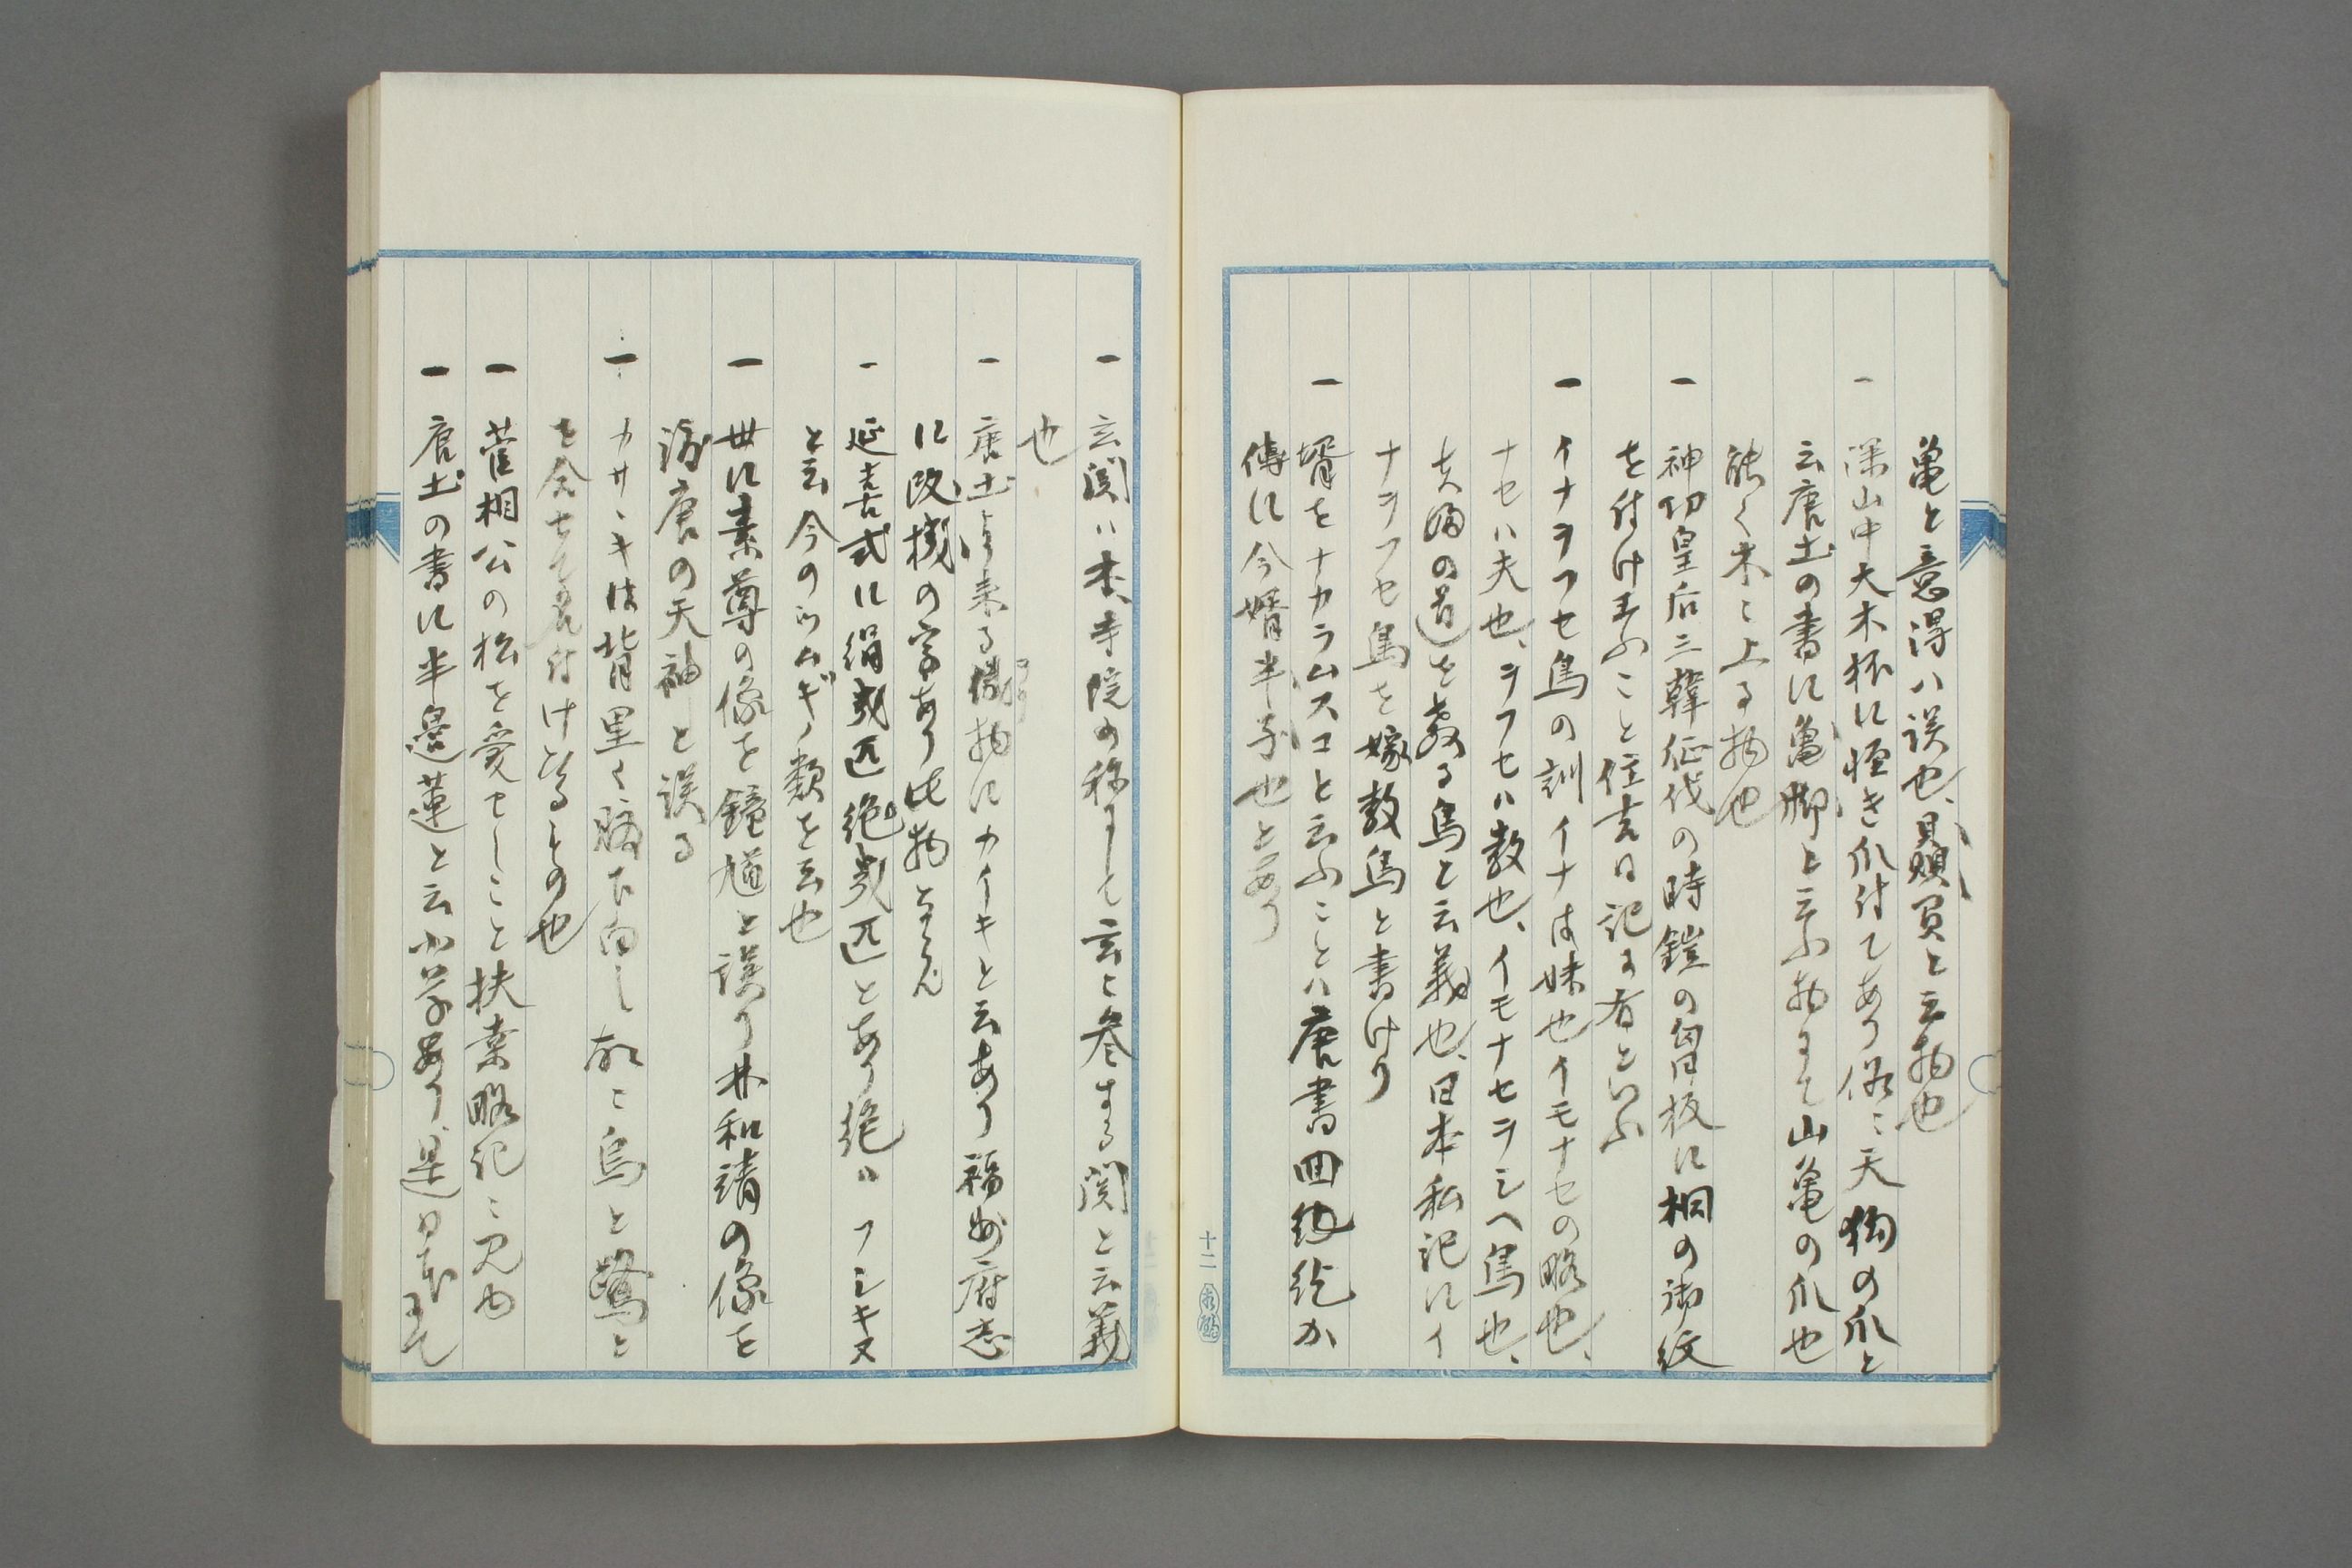 亀と意得ハ誤也、贔屓と云物也
一 深山中大木杯に怪き爪付てあり俗ニ天狗の爪と
云唐土の書に亀脚と云ふ物にて山亀の爪也
能く木ニ上る物也
一 神功皇后三韓征伐の時鎧の胸板に桐の御紋
を付け玉ふこと住吉日記に有といふ
一 イナヲフセ鳥の訓イナは妹也イモナセの略也、
ナセハ夫也、ヲフセハ教也、イモナセヲシヘ鳥也、
夫婦の道を教る鳥と云義也、日本私記にイ
ナヲフセ鳥を嫁教鳥と書けり
一 壻をナカラムスコと云ふことハ唐書回紇か
傳に今婿半子也とあり
十二
一 玄関ハ本寺院の称にして玄と参する関と云義
也
一 唐土より来る織物にカイキと云あり福州府志
に改機の字あり此物ならん
一 延喜式に絹幾匹絁幾匹とあり絁ハフシキヌ
と云今のツムギノ類を云也
一 世に素尊の像を鍾馗と誤り林和靖の像を
渡唐の天神と誤る
一 カサヽキは背黒く腹下白し故ニ烏と鷺と
を合せて名付けたるもの也
一 菅相公の松を愛せしこと扶桑略記ニ見ゆ
一 唐土の書に半邊蓮と云小草あり、是日本にて